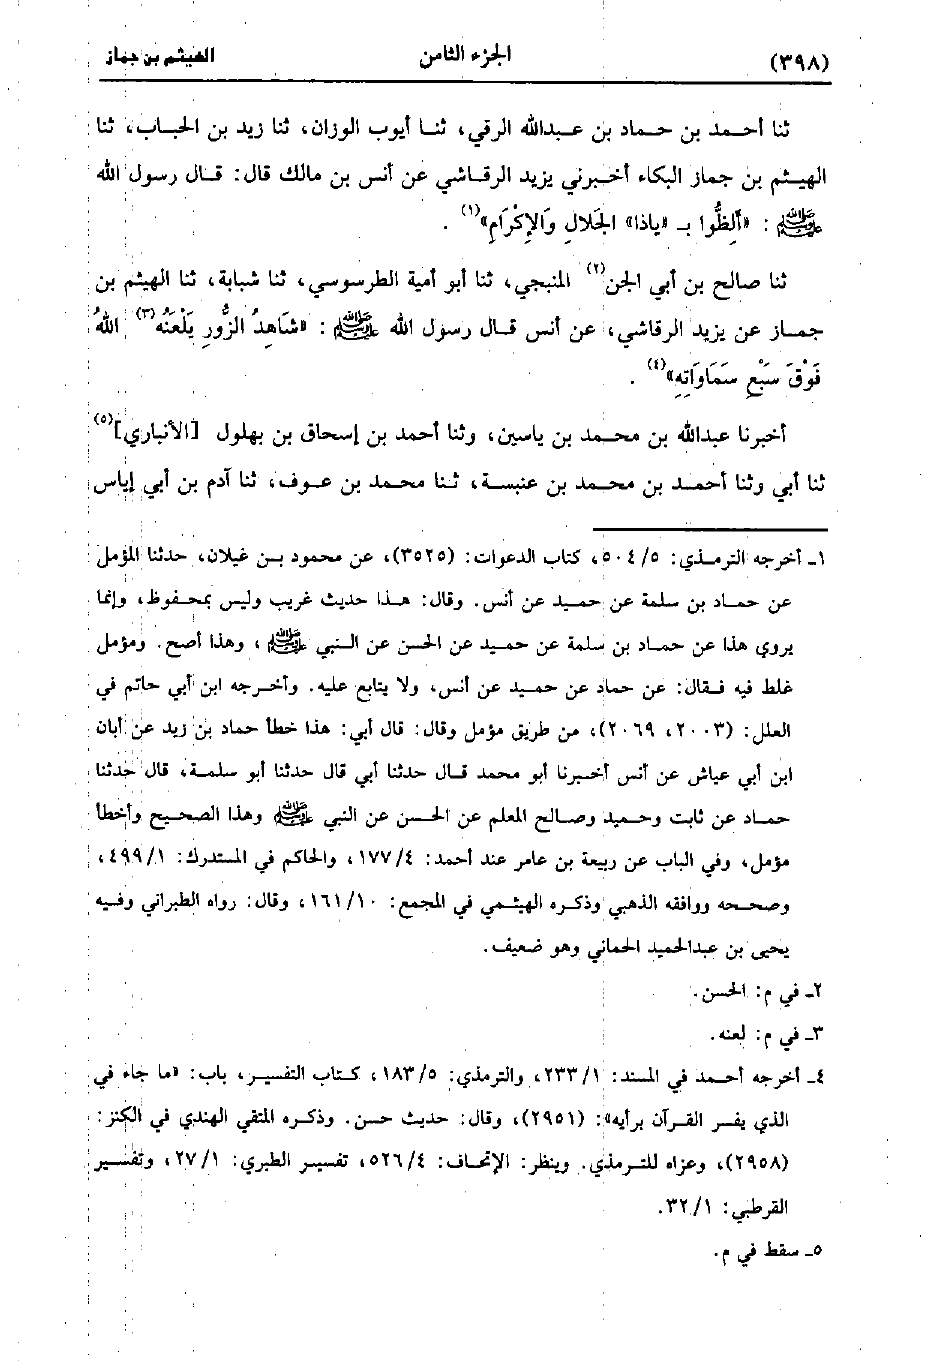 (٣٩٨) الجزء الثامن الهيثم بن جماز
ثنا أحمد بن حماد بن عبدالله الرقي، ثنا أيوب الوزان، ثنا زيد بن الحباب، ثنا
الهيثم بن جماز البكاء أخبرني يزيد الرقاشي عن أنس بن مالك قال: قال رسول الله
ﷺ : «أَلِظُّوا بـ «ياذا» الجَلالِ وَالإِكْرَامِ»(١) .
ثنا صالح بن أبي الجن(٢) المنبجي، ثنا أبو أمية الطرسوسي، ثنا شبابة، ثنا الهيثم بن
جماز عن يزيد الرقاشي، عن أنس قال رسول الله ﷺ : «شَاهِدُ الزُّورِ يَلْعَنُهُ(٣) اللهُ
فَوْقَ سَبْعِ سَمَاوَاتِهِ»(٤) .
أخبرنا عبدالله بن محمد بن ياسين، وثنا أحمد بن إسحاق بن بهلول [الأنباري](٥)
ثنا أبي وثنا أحمد بن محمد بن عنبسة، ثنا محمد بن عوف، ثنا آدم بن أبي إياس
١ـ أخرجه الترمذي: ٥/ ٥٠٤، كتاب الدعوات: (٣٥٢٥)، عن محمود بن غيلان، حدثنا المؤمل
عن حماد بن سلمة عن حميد عن أنس. وقال: هذا حديث غريب وليس بمحفوظ، وإنما
يروي هذا عن حماد بن سلمة عن حميد عن الحسن عن النبي ﷺ ، وهذا أصح. ومؤمل
غلط فيه فقال: عن حماد عن حميد عن أنس، ولا يتابع عليه. وأخرجه ابن أبي حاتم في
العلل: (٢٠٠٣، ٢٠٦٩)، من طريق مؤمل وقال: قال أبي: هذا خطأ حماد بن زيد عن أبان
ابن أبي عياش عن أنس أخبرنا أبو محمد قال حدثنا أبي قال حدثنا أبو سلمة، قال حدثنا
حماد عن ثابت وحميد وصالح المعلم عن الحسن عن النبي ﷺ وهذا الصحيح وأخطأ
مؤمل، وفي الباب عن ربيعة بن عامر عند أحمد: ٤/ ١٧٧، والحاكم في المستدرك: ١/ ٤٩٩،
وصححه ووافقه الذهبي وذكره الهيثمي في المجمع: ١٠/ ١٦١، وقال: رواه الطبراني وفيه
يحيى بن عبدالحميد الحماني وهو ضعيف.
٢ـ في م: الحسن.
٣ـ في م: لعنه.
٤ـ أخرجه أحمد في المسند: ١/ ٢٣٣، والترمذي: ٥/ ١٨٣، كتاب التفسير، باب: «ما جاء في
الذي يفسر القرآن برأيه»: (٢٩٥١)، وقال: حديث حسن. وذكره المتقي الهندي في الكنز:
(٢٩٥٨)، وعزاه للترمذي. وينظر: الإتحاف: ٤/ ٥٢٦، تفسير الطبري: ١/ ٢٧، وتفسير
القرطبي: ١/ ٣٢.
٥ـ سقط في م.